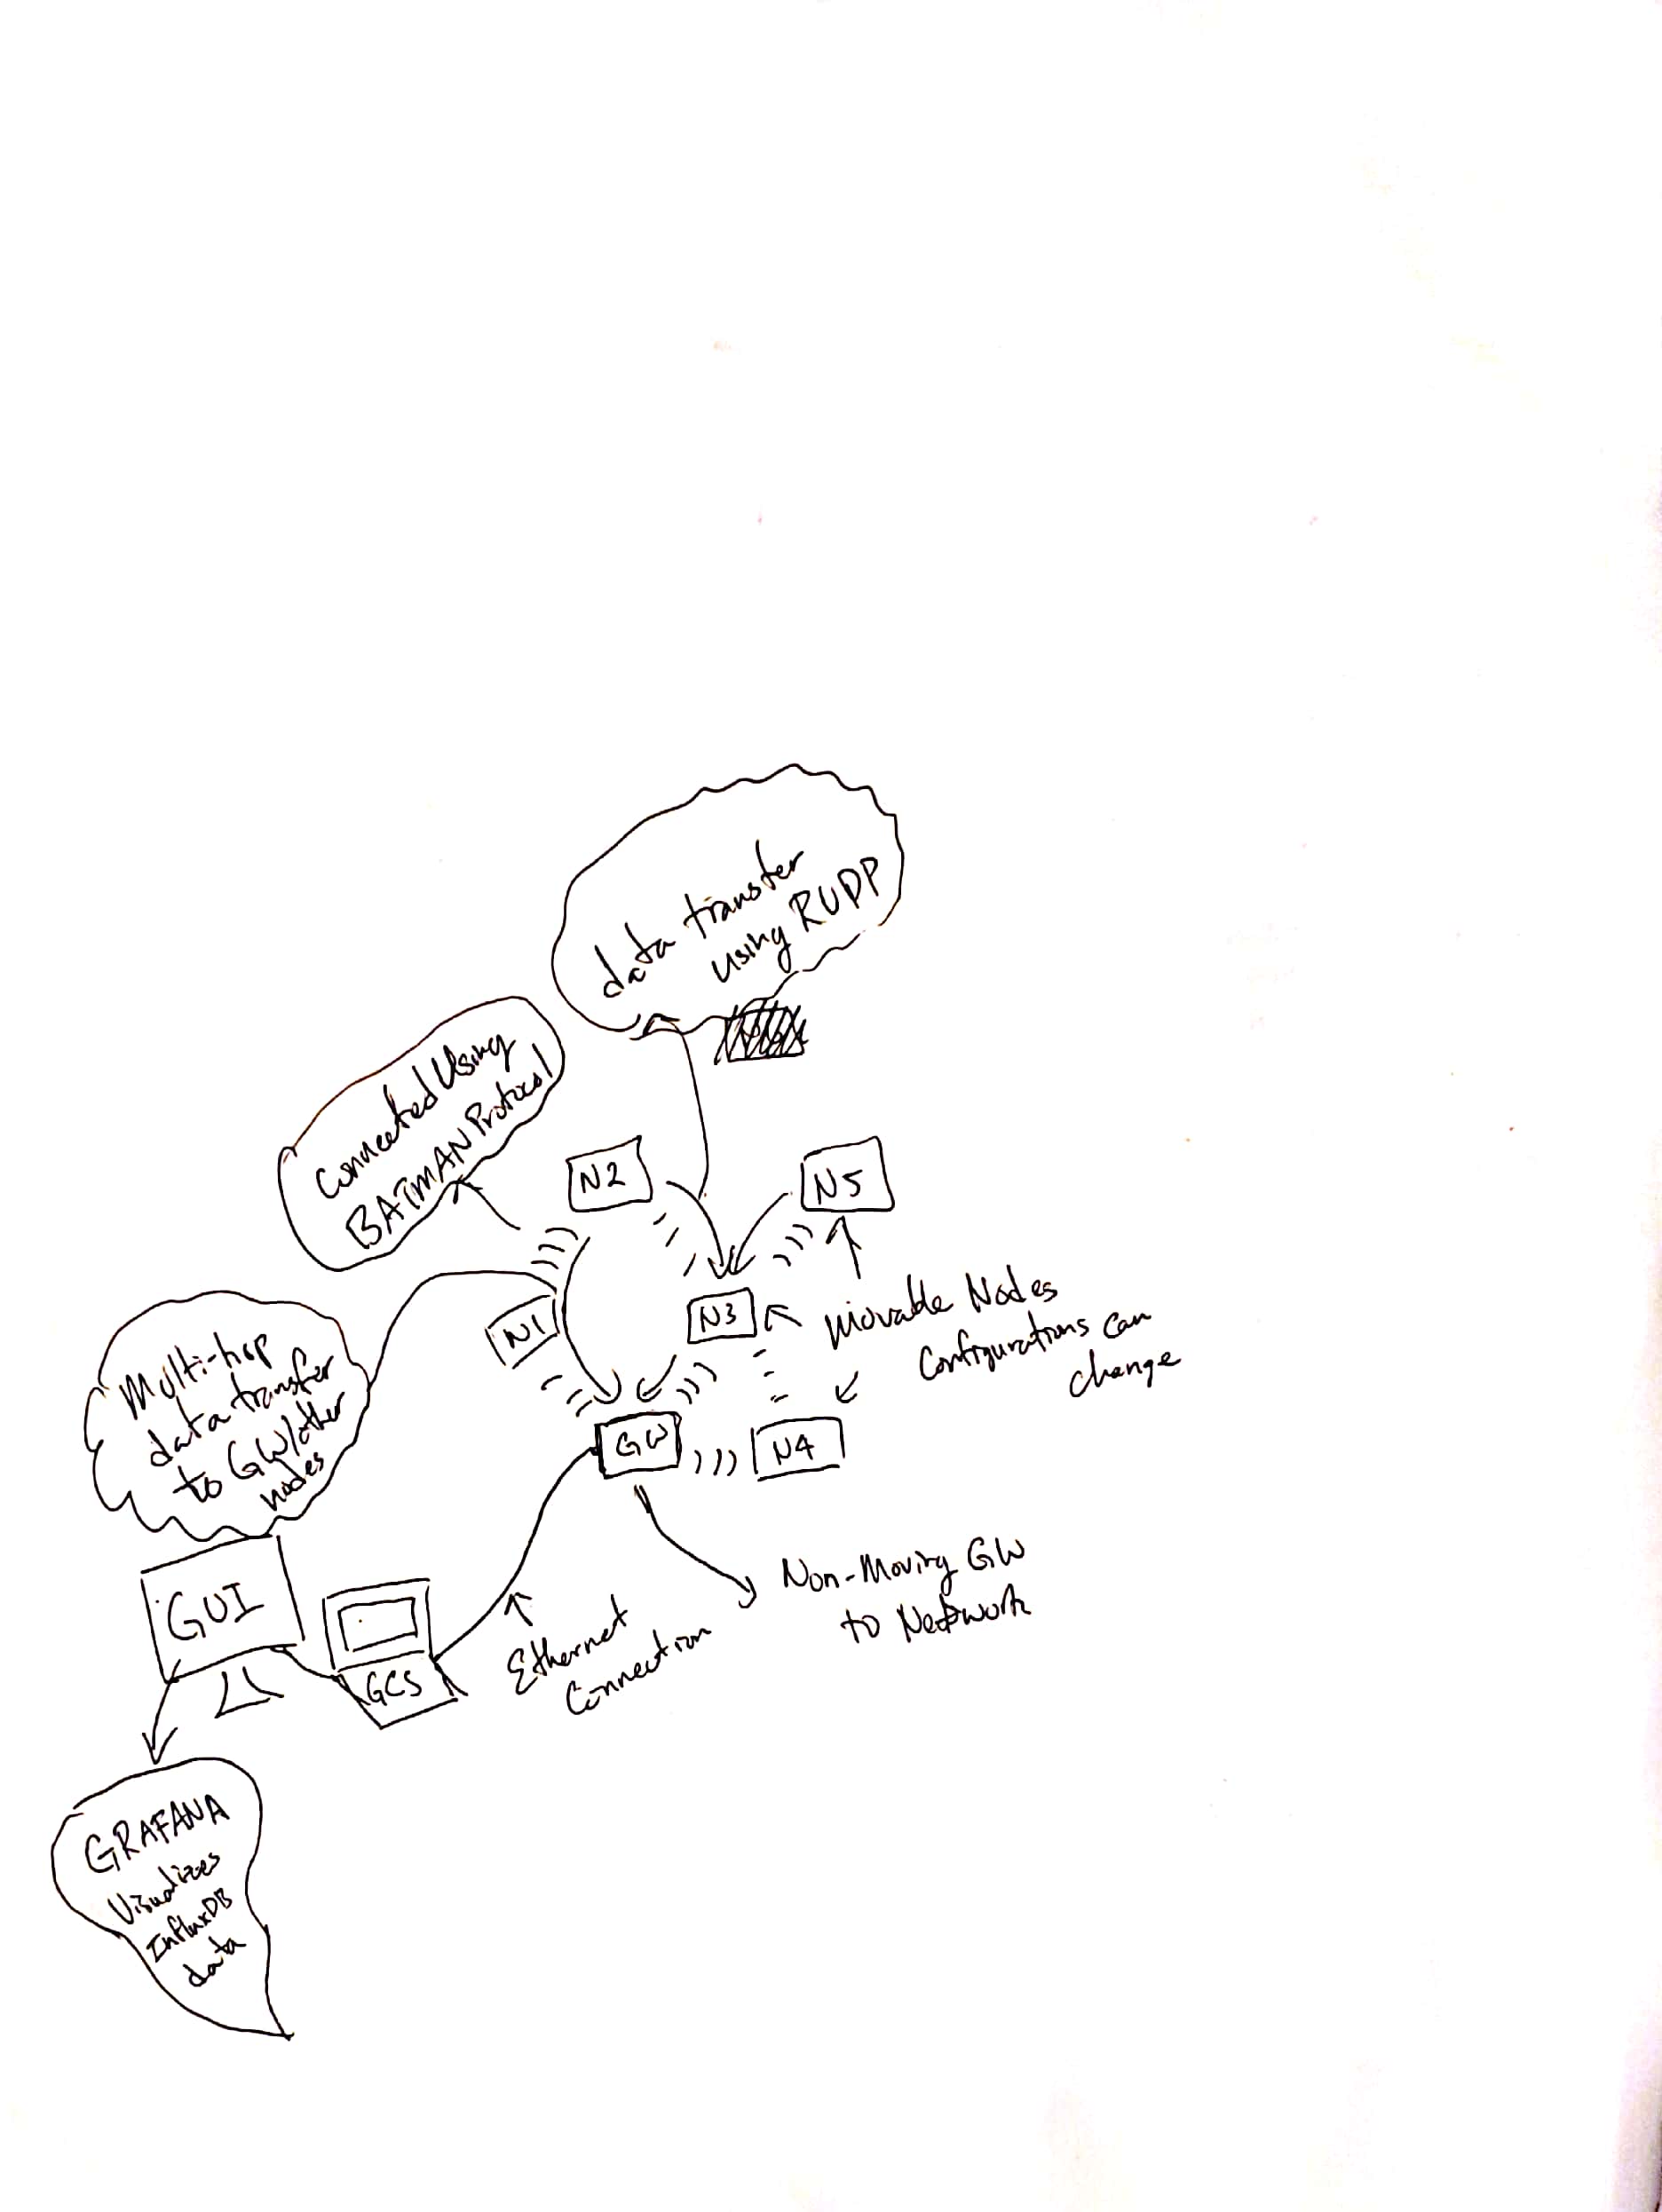 data transfer
using RUDP
Connected Using
BATMAN Protocol
N2
N5
N1
N3
Movable Nodes
Configurations can
change
Multi-hop
data transfer
to GW/other
nodes
GW
N4
Non-Moving GW
to Network
GUI
GCS
Ethernet
Connection
GRAFANA
Visualizes
InfluxDB
data